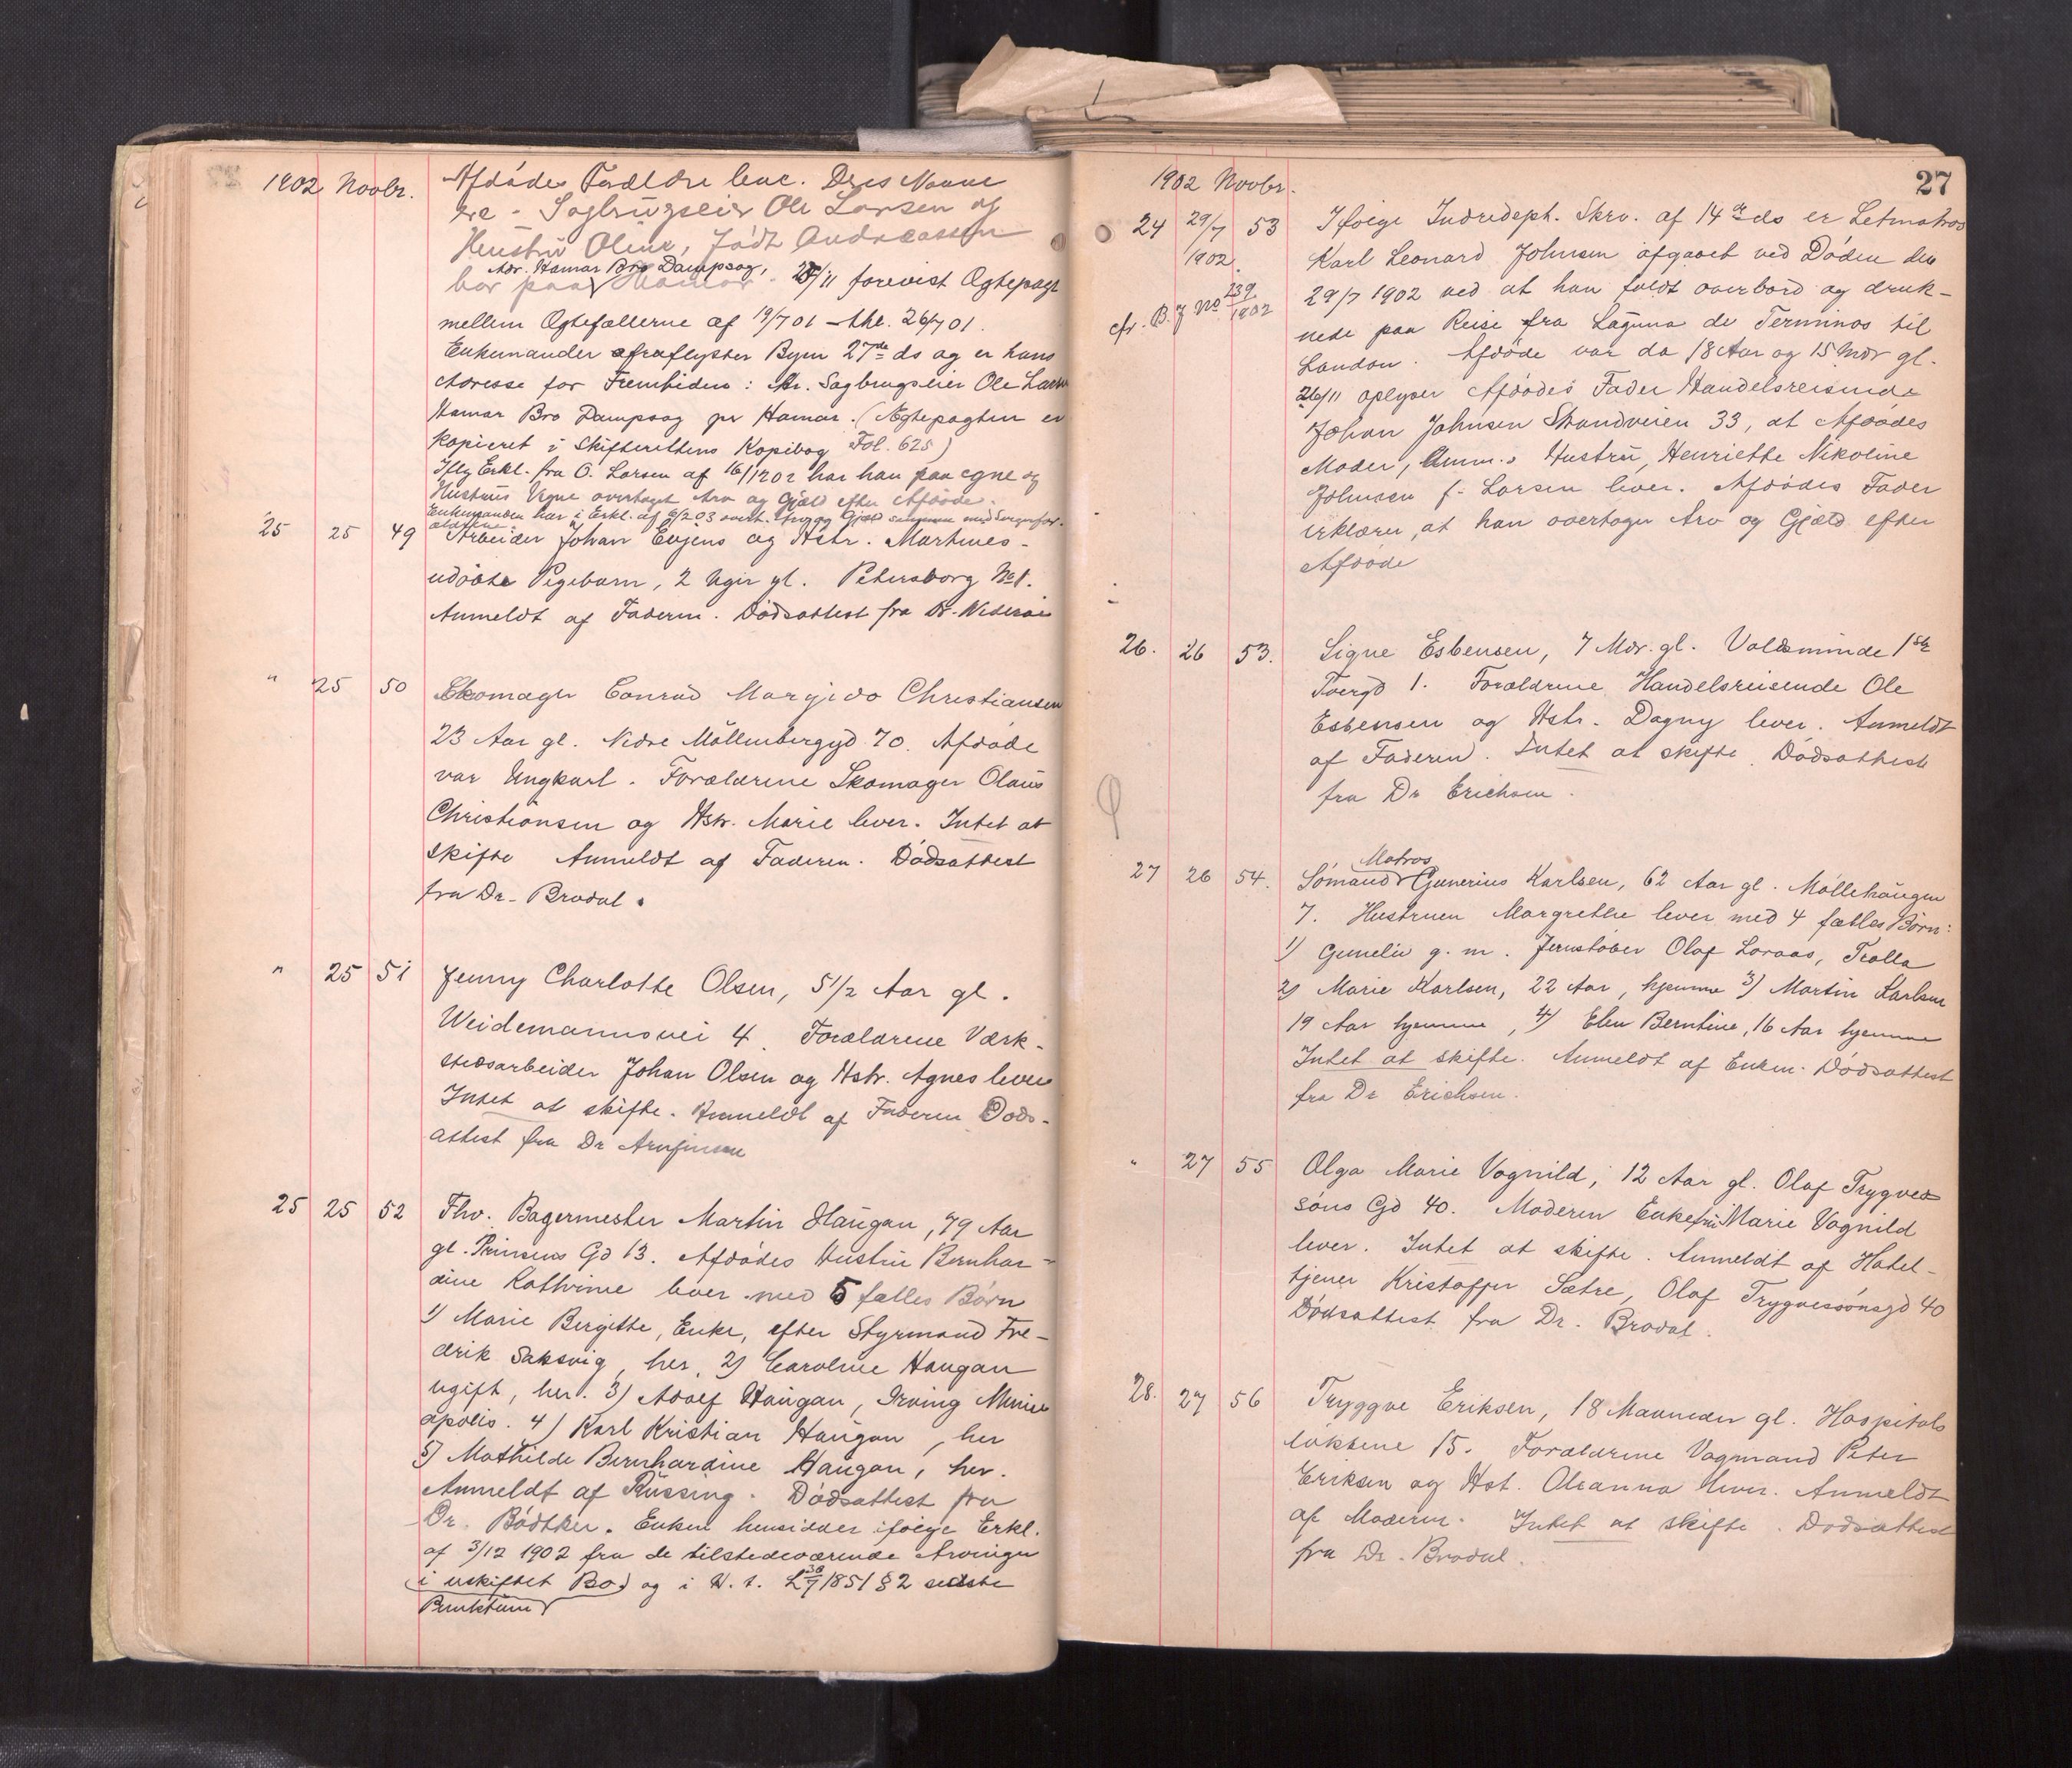 1902 Novbr.
Afdødes Forældre leve. Deres Navne
ere - Sagbrugseier Ole Larsen og
Hustru Oline, født Andreassen
Adr. Hamar Bro Dampsag,
bor paa Hamar. 25/11 forevist Ægtepagt
mellem Ægtefællerne af 19/7 01 - thl. 26/7 01.
Enkemanden fraflytter Byen 27de ds og er hans
Adresse for Fremtiden: Hr. Sagbrugseier Ole Larsen
Hamar Bro Dampsag pr Hamar. (Ægtepagten er
kopieret i Skifterettens Kopibog Fol. 625)
Iflg Erkl. fra O. Larsen af 16/1 1902 har han paa egne og
Hustrus Vegne overtaget Arv og Gjæld efter Afdøde.
Enkemanden har i Erkl. af 9/2 03 overt. Arv og Gjæld sammen med Svigerfor-
ældrene.
25 25 49 Arbeider Johan Eugens og Hstr. Martines
udøbte Pigebarn, 2 Uger gl. Petersborg No 1.
Anmeldt af Faderen. Dødsattest fra Dr. Widerøe
" 25 50 Skomager Conrad Margido Christiansen
23 Aar gl. Nedre Møllenbergsgd 70. Afdøde
var Ungkarl. Forældrene Skomager Olaus
Christiansen og Hstr. Marie lever. Intet at
skifte Anmeldt af Faderen. Dødsattest
fra Dr. Brodal.
" 25 51 Jenny Charlotte Olsen, 5 1/2 Aar gl.
Weidemannsvei 4. Forældrene Værk-
stedsarbeider Johan Olsen og Hstr. Agnes lever
Intet at skifte. Anmeldt af Faderen Døds-
attest fra Dr Arnfinsen
25 25 52 Fhv. Bagermester Martin Haugan, 79 Aar
gl. Prinsens Gd 13. Afdødes Hustru Bernhar-
dine Kathrine lever med 5 fælles Børn
1) Marie Birgitte, Enke, efter Styrmand Fre-
drik Saksvig, her, 2) Caroline Haugan
ugift, her. 3) Adolf Haugan, Irving Minne
apolis. 4) Karl Kristian Haugan, her
5) Mathilde Bernhardine Haugan, her.
Anmeldt af Rüssing. Dødsattest fra
Dr. Bødtker. Enken hensidder ifølge Erkl.
af 3/12 1902 fra de tilstedeværende Arvinger
i uskiftet Bo, og i H. t. L 30/7 1851 § 2 sidste
Punktum
27
1902 Novbr.
24 29/7 1902. 53 Ifølge Indredept. Skrv. af 14 de ds er Letmatros
Karl Leonard Johnsen afgaaet ved Døden den
cfr. B. J No 239/1902
29/7 1902 ved at han faldt overbord og druk-
nede paa Reise fra Laguna de Terminos til
London. Afdøde var da 18 Aar og 15 Mdr gl.
26/11 oplyser Afdødes Fader Handelsreisende
Johan Johnsen Strandveien 33, at Afdødes
Moder, Anm.s Hustru, Henriette Nikoline
Johnsen f. Larsen lever. Afdødes Fader
erklærer, at han overtager Arv og Gjæld efter
Afdøde
26. 26 53. Signe Esbensen, 7 Mdr. gl. Voldsminde 1ste
Tvergd 1. Forældrene Handelsreisende Ole
Esbensen og Hstr. Dagny lever. Anmeldt
af Faderen. Intet at skifte. Dødsattest
fra Dr Erichsen.
27 26 54. Sømand Matros Gunerius Karlsen, 62 Aar gl. Møllehaugen
7. Hustruen Margrethe lever med 4 fælles Børn:
1) Gunelie g. m. Jernstøber Olaf Loraas, Trolla
2) Marie Karlsen, 22 Aar, hjemme 3) Martin Karlsen
19 Aar hjemme, 4) Elen Berntine, 16 Aar hjemme
Intet at skifte. Anmeldt af Enken. Dødsattest
fra Dr Erichsen.
" 27 55 Olga Marie Vognild, 12 Aar gl. Olaf Trygves
søns Gd 40. Moderen Enkefru Marie Vognild
lever. Intet at skifte. Anmeldt af Hotel-
tjener Kristoffer Sætre, Olaf Trygvessønsgd 40
Dødsattest fra Dr. Brodal.
28. 27 56 Tryggve Eriksen, 18 Maaneder gl. Hospitals
løkkene 15. Forældrene Vognmand Peter
Eriksen og Hst. Oleanna lever. Anmeldt
af Moderen. Intet at skifte. Dødsattest
fra Dr. Brodal.